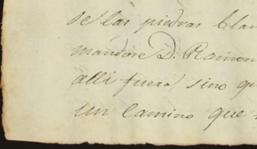 de las piedras blan
mandare D. Ramon
alli fuera sino qu
un camino que